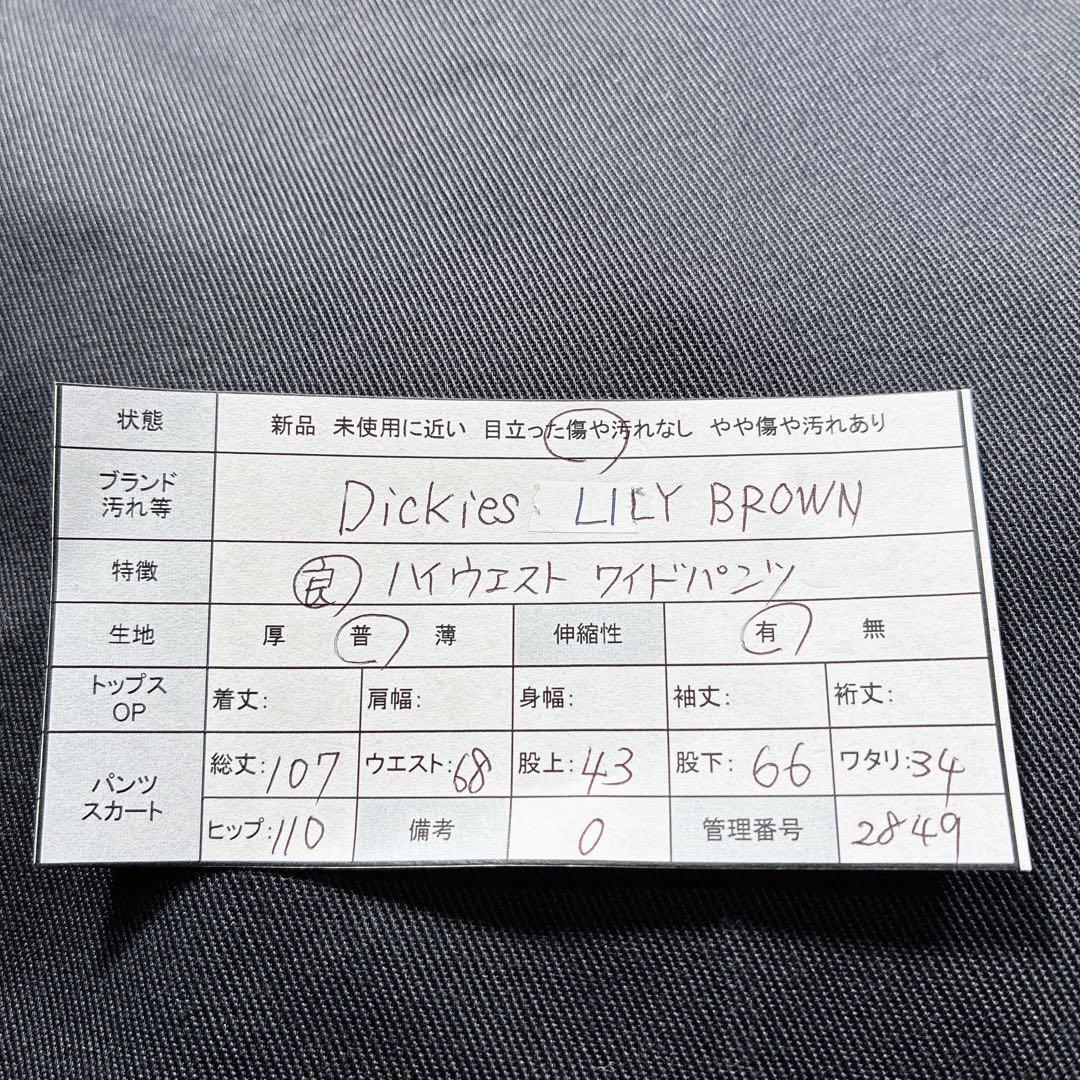 状態 新品 未使用に近い 目立った傷や汚れなし やや傷や汚れあり
ブランド
汚れ等
Dickies LILY BROWN
特徴 良 ハイウエスト ワイドパンツ
生地 厚 普 薄 伸縮性 有 無
トップス
OP
着丈: 肩幅: 身幅: 袖丈: 裄丈:
パンツ
スカート
総丈:107 ウエスト:68 股上:43 股下:66 ワタリ:34
ヒップ:110 備考 0 管理番号 2849